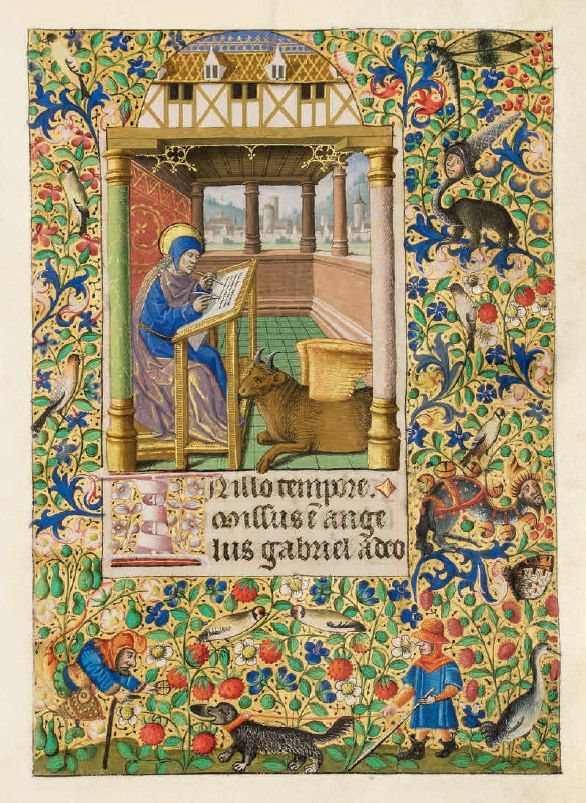 IN illo tempore.
missus ē ange
lus gabriel a deo